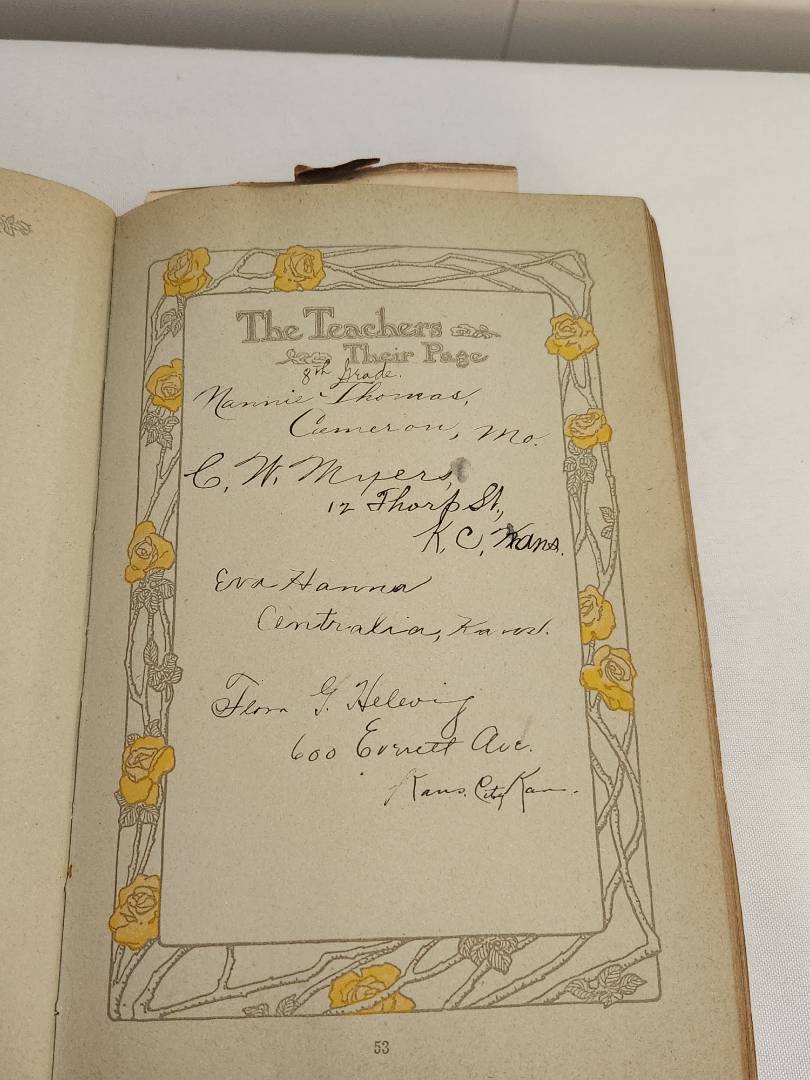 The Teachers
Their Page
8th Grade.
Nannie Thomas,
Cameron, Mo.
C. W. Myers,
12 Thorp St.,
K. C., Kans.
Eva Hanna
Centralia, Kans.
Flora G. Helwig
600 Everett Ave.
Kans. City Kan.
53